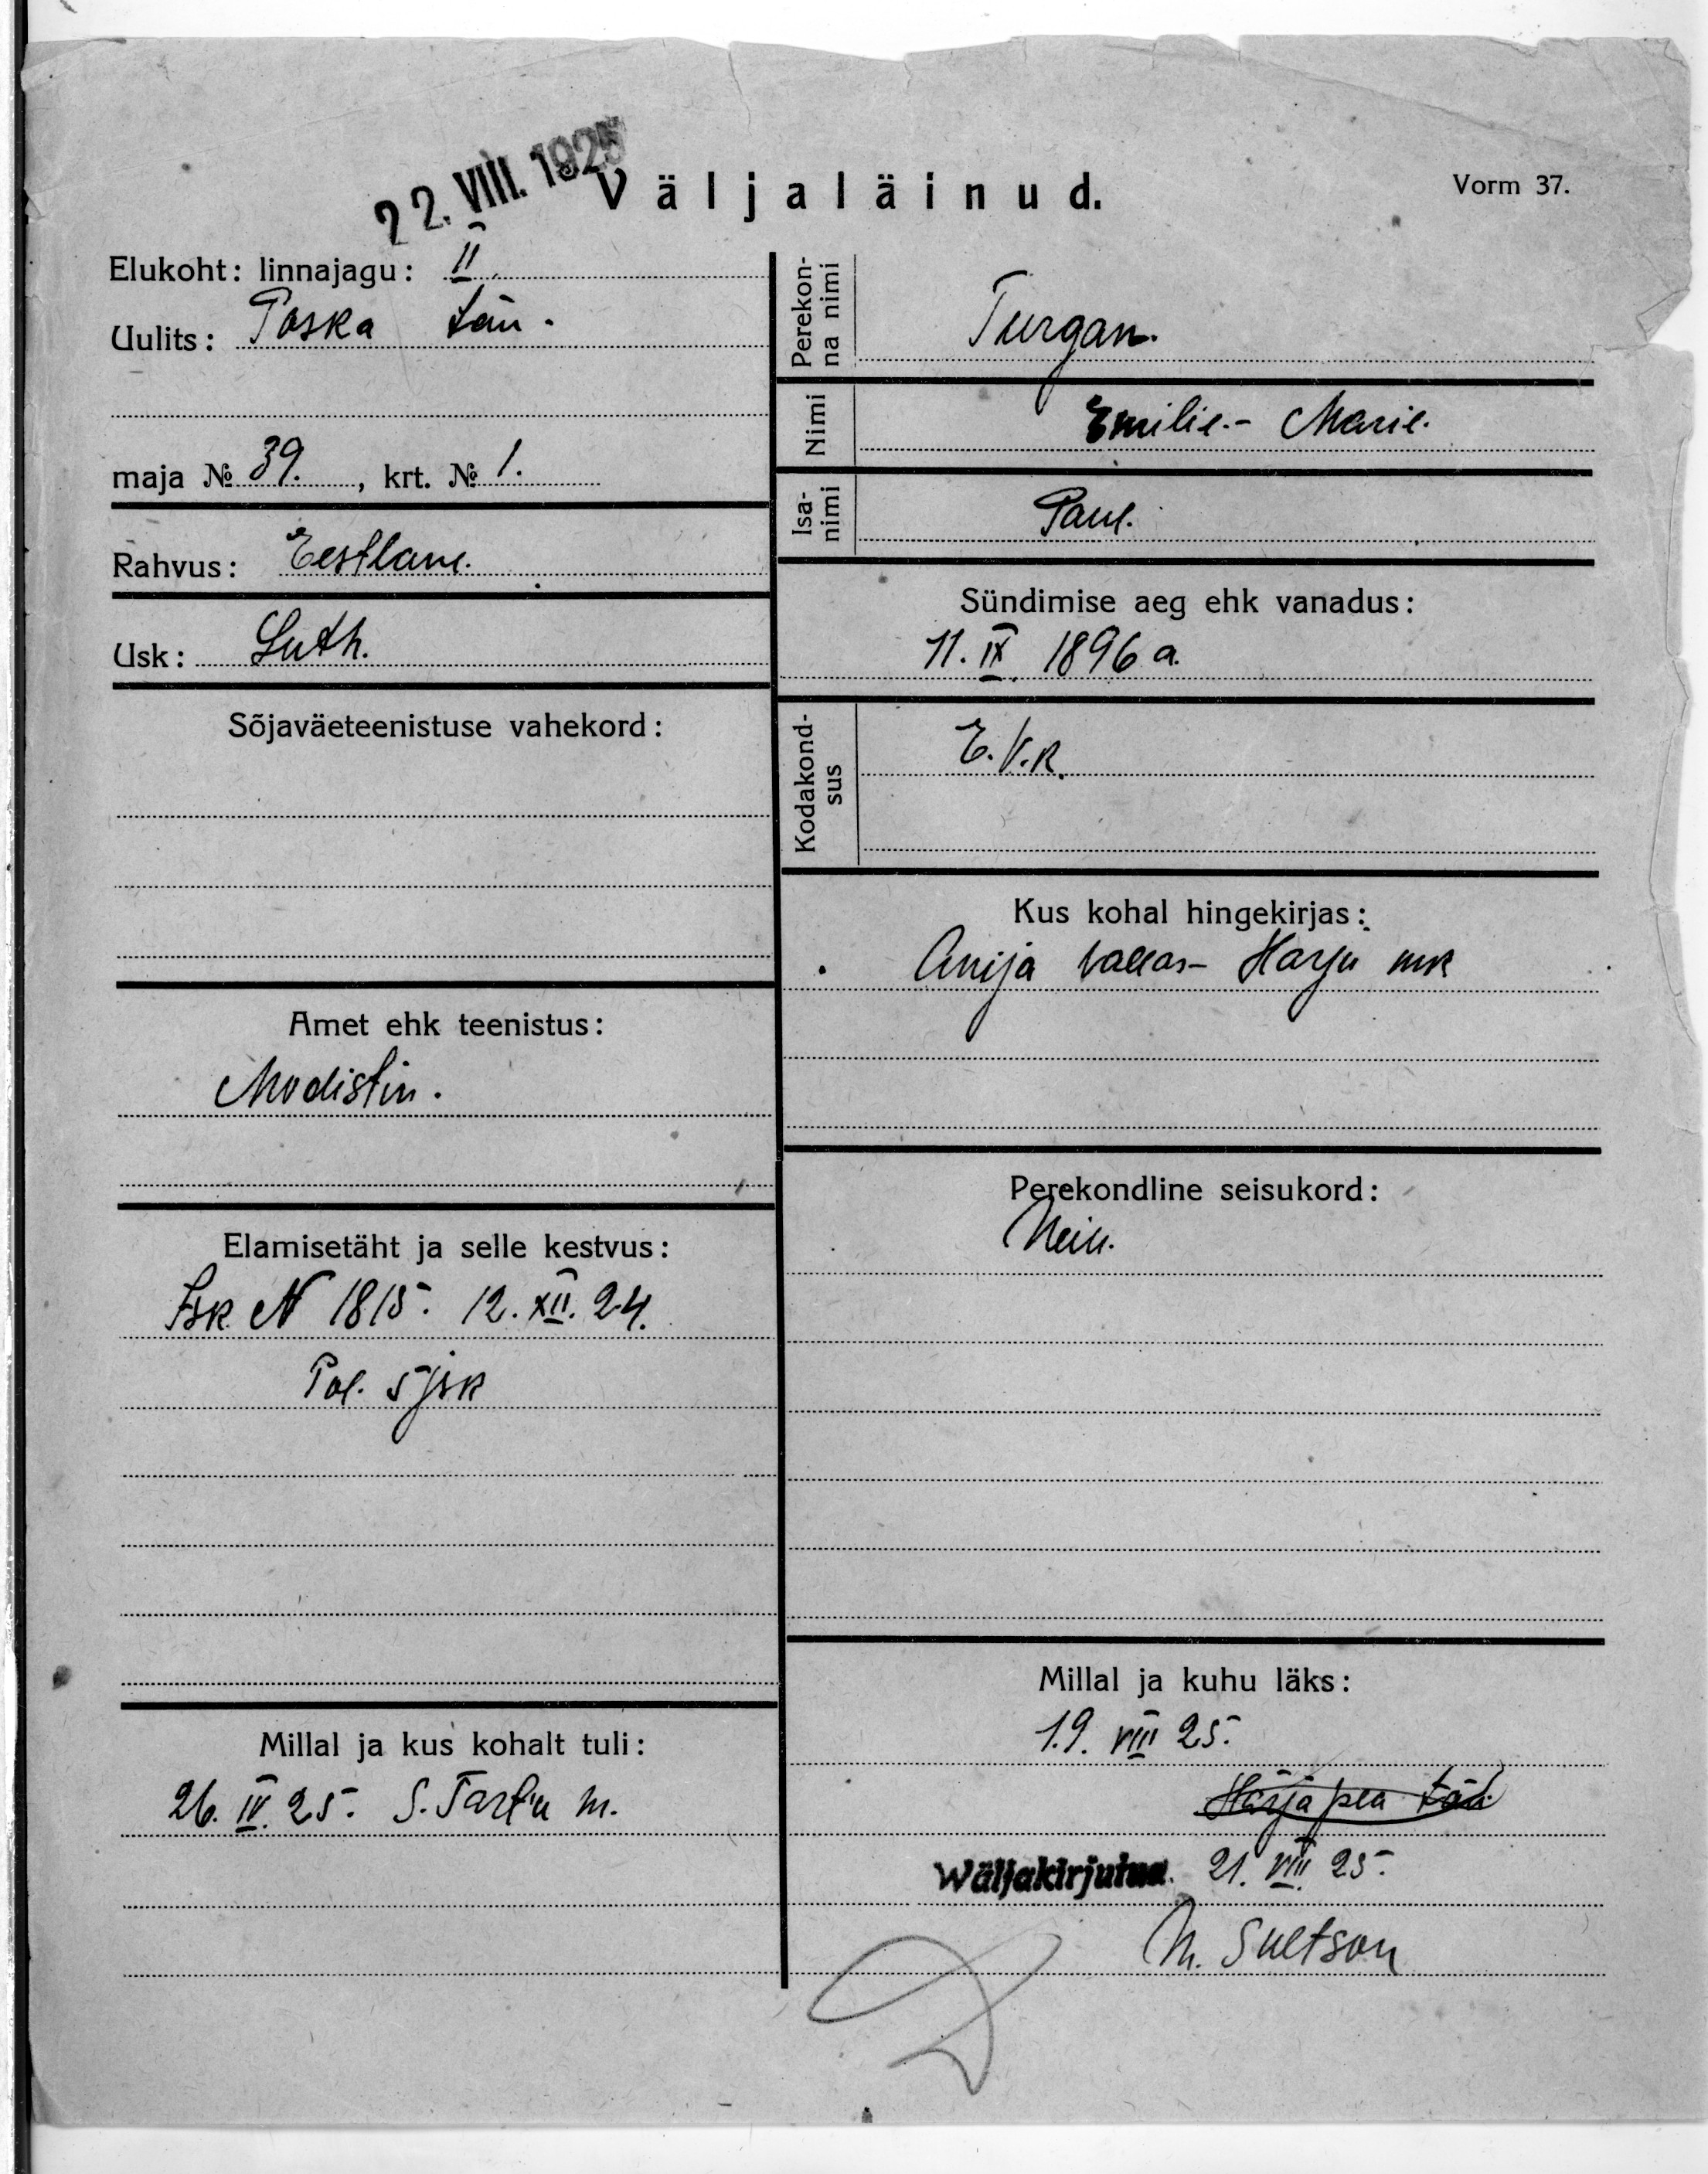 22. VIII. 1925
Väljaläinud.
Vorm 37.
Elukoht: linnajagu: II
Uulits: Poska tän.
maja № 39., krt. № 1.
Rahvus: Eestlane.
Usk: Luth.
Sõjaväeteenistuse vahekord:
Amet ehk teenistus:
Modistin.
Elamisetäht ja selle kestvus:
Isk N 1815. 12. XII. 24.
Pol. 5 jsk
Millal ja kus kohalt tuli:
26. IV. 25. S. Tartu m.
Perekon-
na nimi
Turgan.
Nimi
Emilie.- Marie.
Isa-
nimi
Paul.
Sündimise aeg ehk vanadus:
11. IX 1896 a.
Kodakond-
sus
E.V.K.
Kus kohal hingekirjas:
Anija vallas- Harju mk
Perekondline seisukord:
Neiu.
Millal ja kuhu läks:
19. VIII 25.
Härjapea tän.
Wäljakirjutud. 21. VIII. 25.
M. Sultson